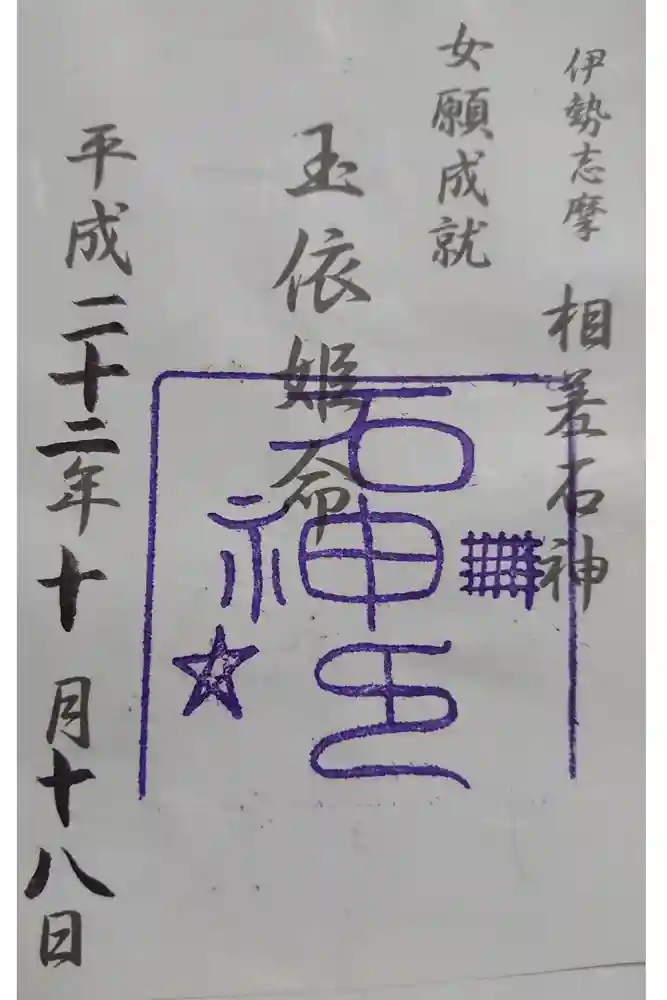 伊勢志摩 相差石神
女願成就
玉依姫命
石神之印
平成二十二年十月十八日